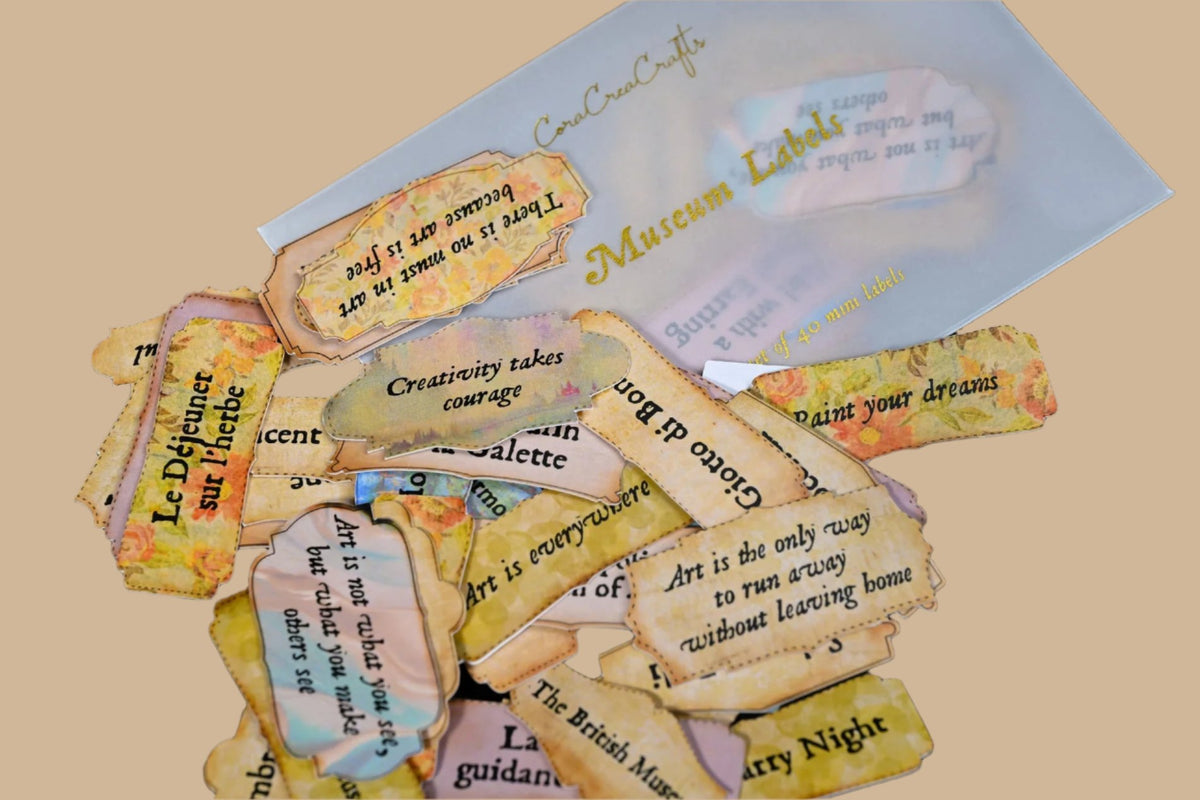 CoraCreaCrafts
Museum Labels
of 40 mini labels
Art is not what you
but what you make
others see
with a
Earring
There is no must in art
because art is free
Le Déjeuner
sur l'herbe
Creativity takes
courage
Galette
Giotto di
Paint your dreams
Art is everywhere
Art is the only way
to run away
without leaving home
of
Art is not what you see,
but what you make
others see
The British
La
Night